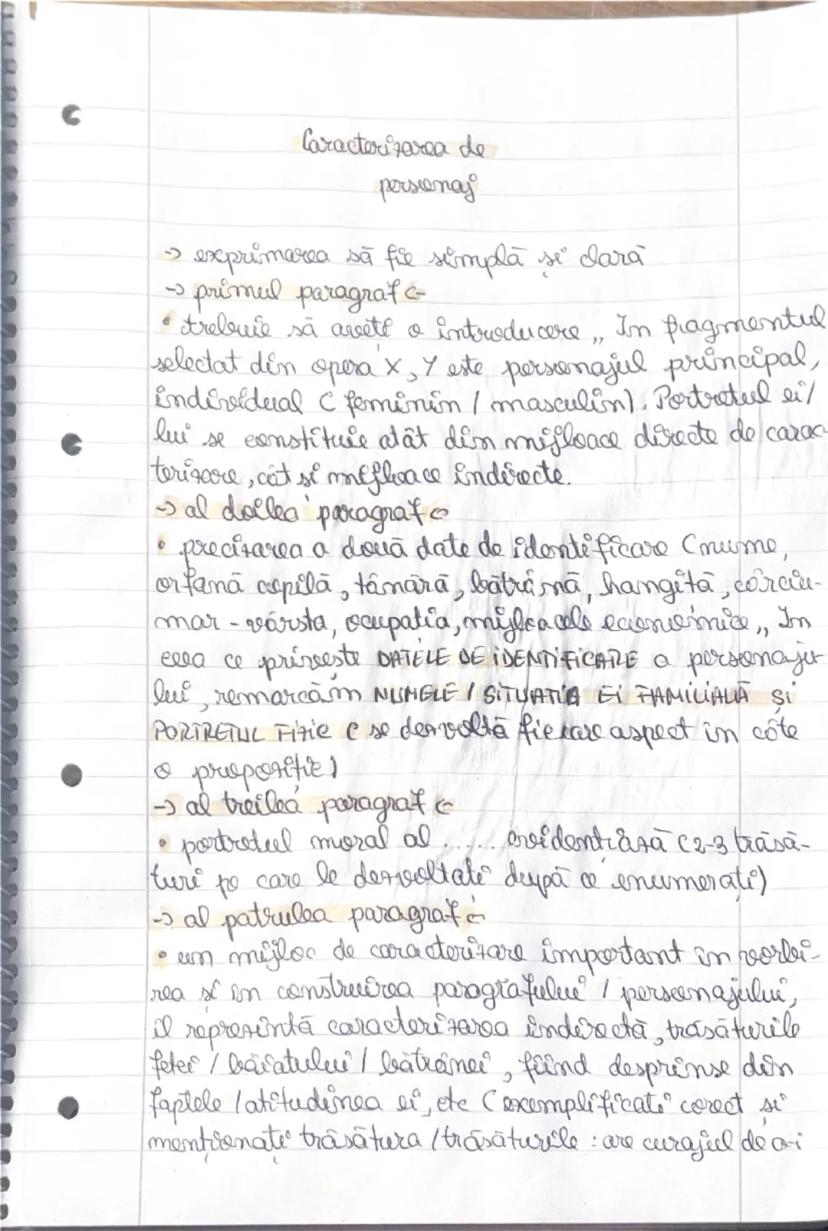 Caracterizarea de
personaj
-> exprimarea să fie simplă și clară
-> primul paragraf <-
• trebuie să aveți o introducere „ In fragmentul
selectat din opera X, Y este personajul principal,
individual ( feminin / masculin). Portretul ei/
lui se constituie atât din mijloace directe de carac-
terizare, cât si mijloace indirecte.
-> al doilea paragraf <-
• precizarea a două date de identificare (nume,
orfană copilă, tânără, bătrână, hangiță, cârciu-
mar - vârsta, ocupatia, mijloacele economice „ In
ceea ce privește DATELE DE IDENTIFICARE a personaju-
lui, remarcăm NUMELE / SITUATIA EI FAMILIALĂ ȘI
PORTRETUL FIZIC ( se dezvoltă fiecare aspect in câte
o propoziție)
-> al treilea paragraf <-
• portretul moral al ..... evidentiază (2-3 trăsă-
turi pe care le dezvoltati după ce enumerați)
-> al patrulea paragraf <-
• un mijloc de caracterizare important in vorbi-
rea si in construirea paragrafului / personajului,
il reprezintă caracterizarea indirectă, trăsăturile
fetei / băiatului / bătrânei, fiind desprinse din
faptele / atitudinea ei, etc ( exemplificati corect si
menționați trăsătura / trăsăturile : are curajul de a-i